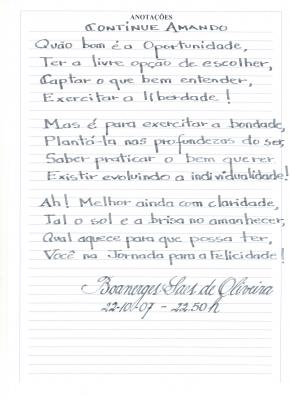 ANOTAÇÕES
CONTINUE AMANDO
Quão bom é a Oportunidade,
Ter a livre opção de escolher,
Captar o que bem entender,
Exercitar a liberdade!
Mas é para exercitar a bondade,
Plantá-la nas profundezas do ser,
Saber praticar o bem querer
Existir evoluindo a individualidade!
Ah! Melhor ainda com claridade,
Tal o sol e a brisa no amanhecer,
Qual aquece para que possa ter,
Você na Jornada para a Felicidade!
Boanerges Saes de Oliveira
22-10-07 - 22.50h